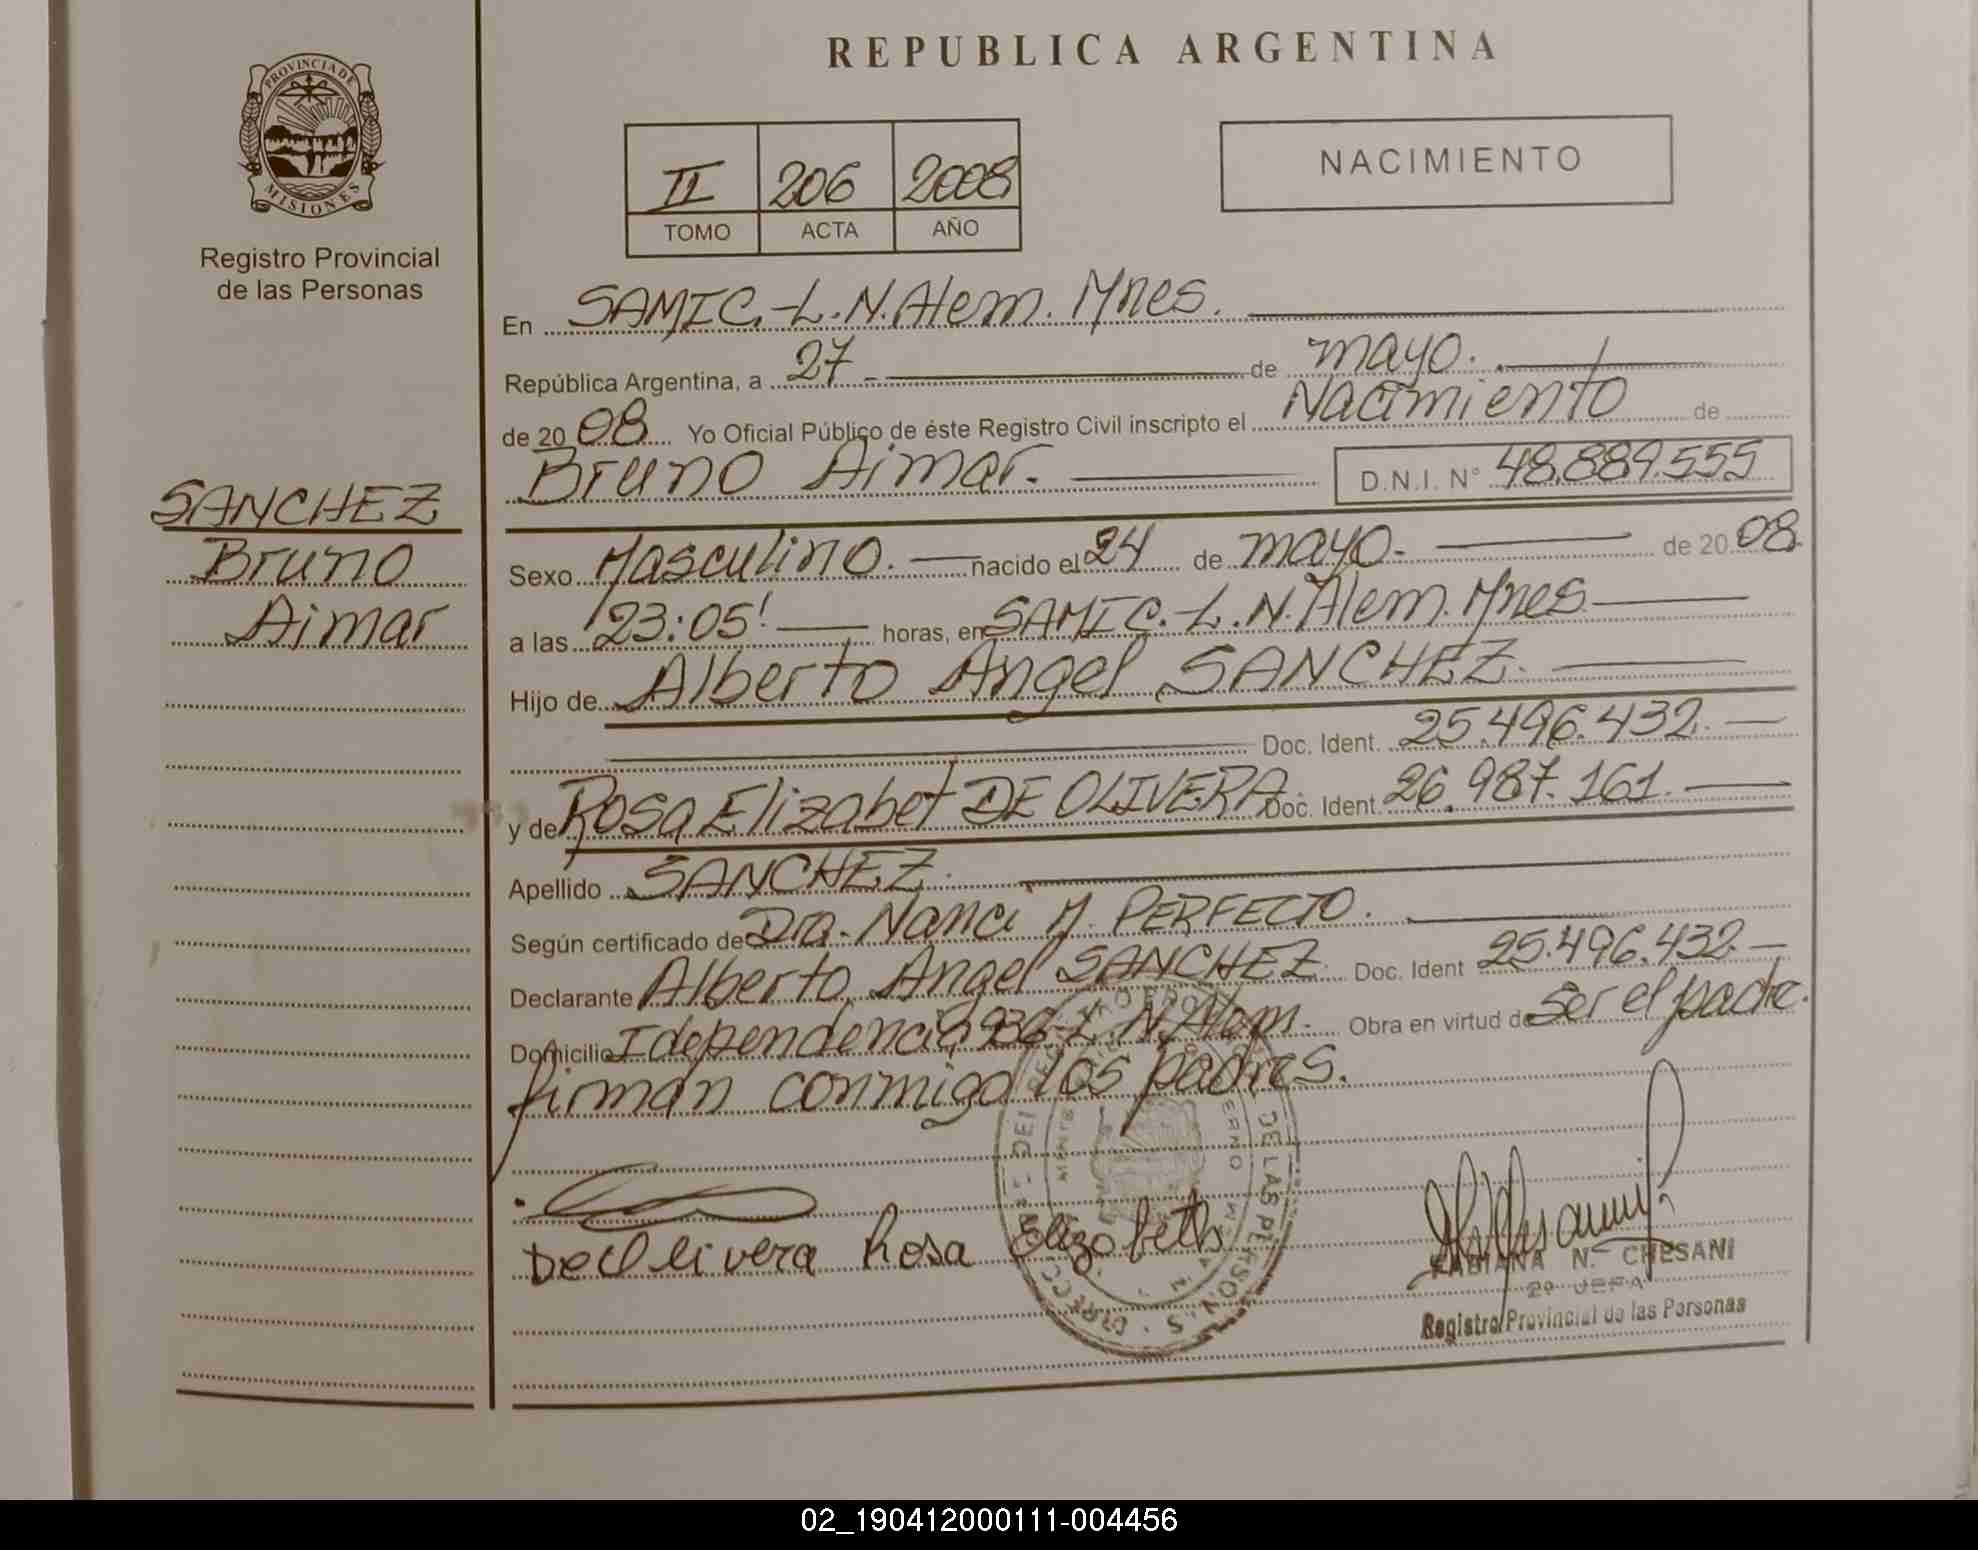 REPUBLICA ARGENTINA
PROVINCIA DE
MISIONES
Registro Provincial
de las Personas
II 206 2008
TOMO ACTA AÑO
NACIMIENTO
En SAMIC.-L.N.Alem. Mnes.
República Argentina, a 27 de mayo.
de 20 08 Yo Oficial Público de éste Registro Civil inscripto el Nacimiento de
Bruno Aimar. D.N.I. N° 48.889.555
SANCHEZ
Bruno
Aimar
Sexo Masculino. nacido el 24 de mayo. de 20 08
a las 23:05' horas, en SAMIC.-L.N.Alem. Mnes
Hijo de Alberto Angel SANCHEZ.
Doc. Ident. 25.496.432.
y de Rosa Elizabet DE OLIVERA. Doc. Ident. 26.987.161.
Apellido SANCHEZ.
Según certificado de Dra. Nanci M. PERFECTO.
Declarante Alberto Angel SANCHEZ Doc. Ident 25.496.432
Domicilio Idependencia 936-L.N.Alem. Obra en virtud de Ser el padre.
firman conmigo los padres.
DeOlivera Rosa Elizabeth
FABIANA N. CHESANI
2º JEFA
Registro Provincial de las Personas
DE LAS PERSONAS
02_190412000111-004456